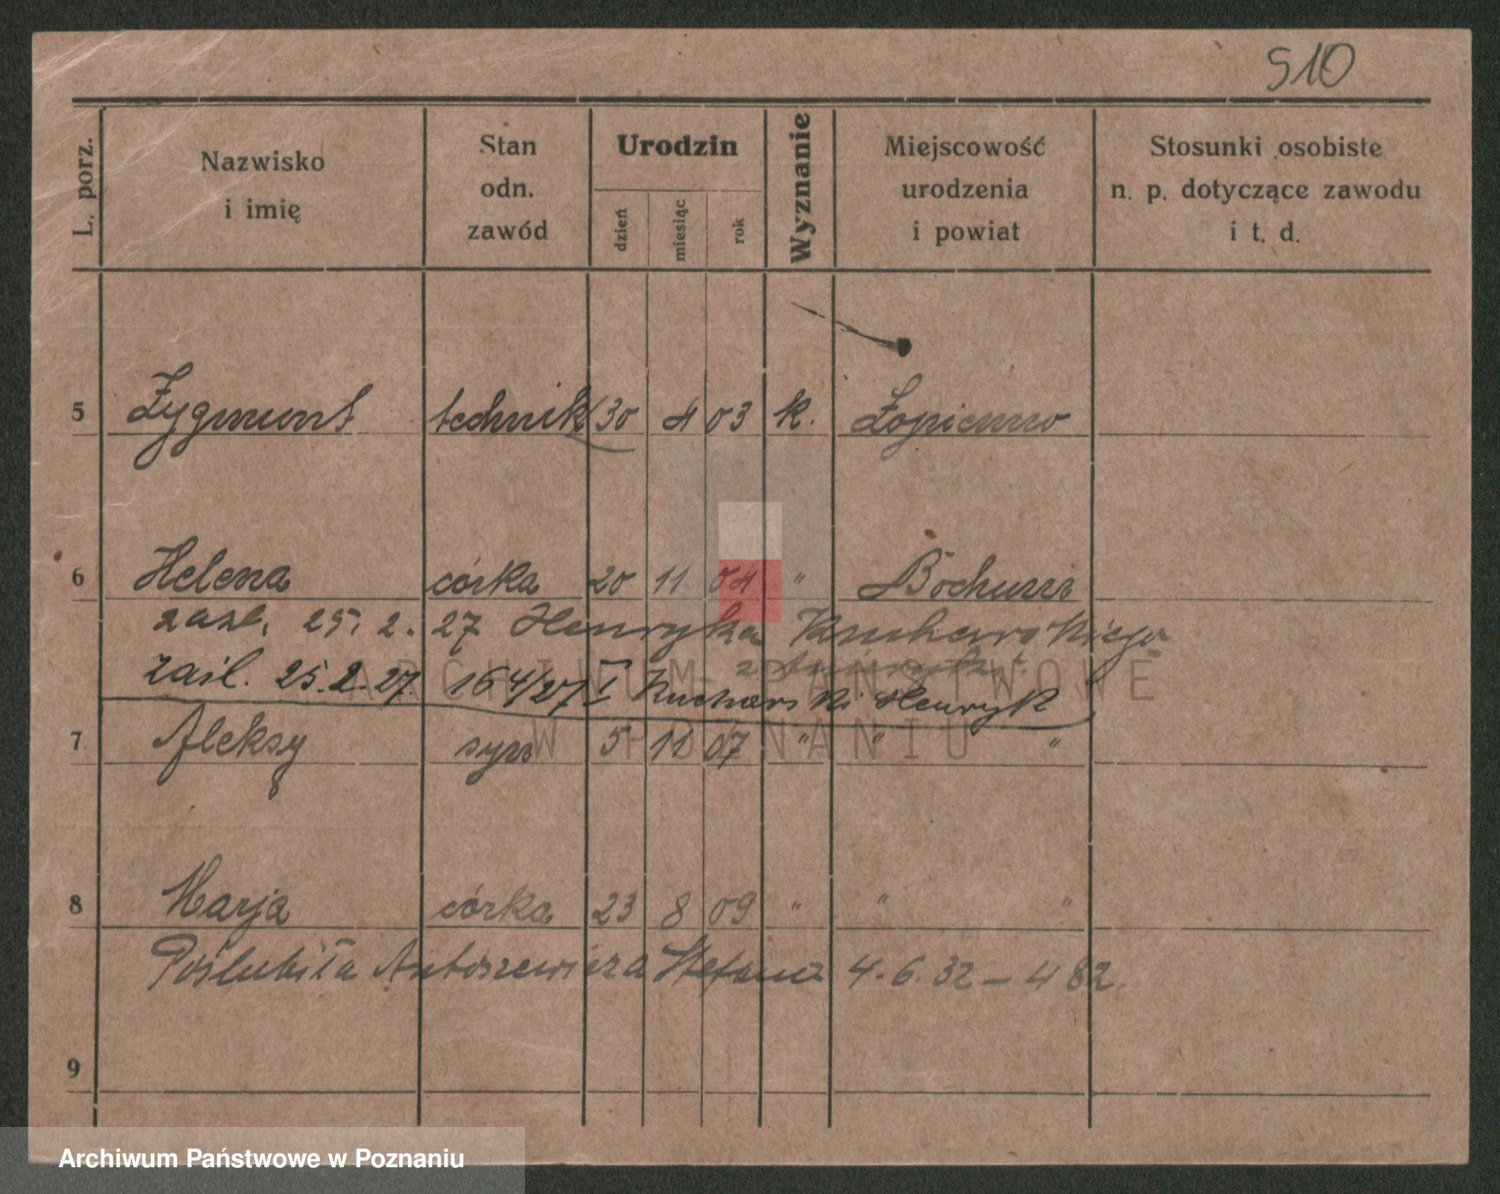 510
L. porz.
Nazwisko
i imię
Stan
odn.
zawód
Urodzin
dzień
miesiąc
rok
Wyznanie
Miejscowość
urodzenia
i powiat
Stosunki osobiste
n. p. dotyczące zawodu
i t. d.
5 Zygmunt technik 30 4 03 k. Łopienno
6 Helena córka 20 11 04 " Bochum
zaśl. 25. 2. 27 Henryka Kucharskiego
zaśl. 25.2.27 164/27 I Kucharski Henryk
7 Aleksy syn 5 11 07 " " "
8 Marja córka 23 8 09 " " "
Poślubiła Antoszewicza Stefana 4.6.32 – 482.
9
ARCHIWUM PAŃSTWOWE
W POZNANIU
Archiwum Państwowe w Poznaniu